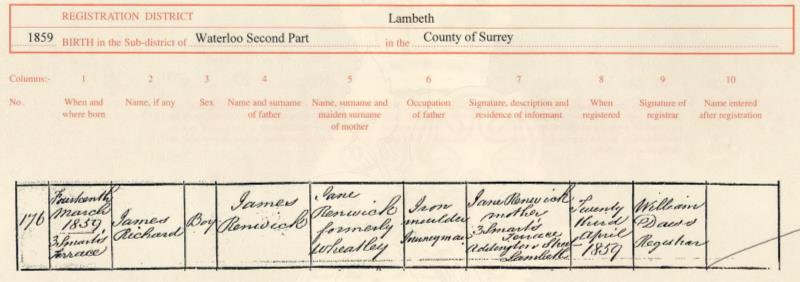 REGISTRATION DISTRICT Lambeth
1859 BIRTH in the Sub-district of Waterloo Second Part in the County of Surrey
Columns:- 1 2 3 4 5 6 7 8 9 10
No. When and where born Name, if any Sex Name and surname of father Name, surname and maiden surname of mother Occupation of father Signature, description and residence of informant When registered Signature of registrar Name entered after registration
176
Fourteenth
March
1859
3 Smarts
Terrace
James
Richard
Boy
James
Renwick
Jane
Renwick
formerly
Wheatley
Iron
moulder
Jane Renwick
mother
3 Smarts
Terrace
Addington Street
Lambeth
Twenty
third
April
1859
William
Daws
Registrar